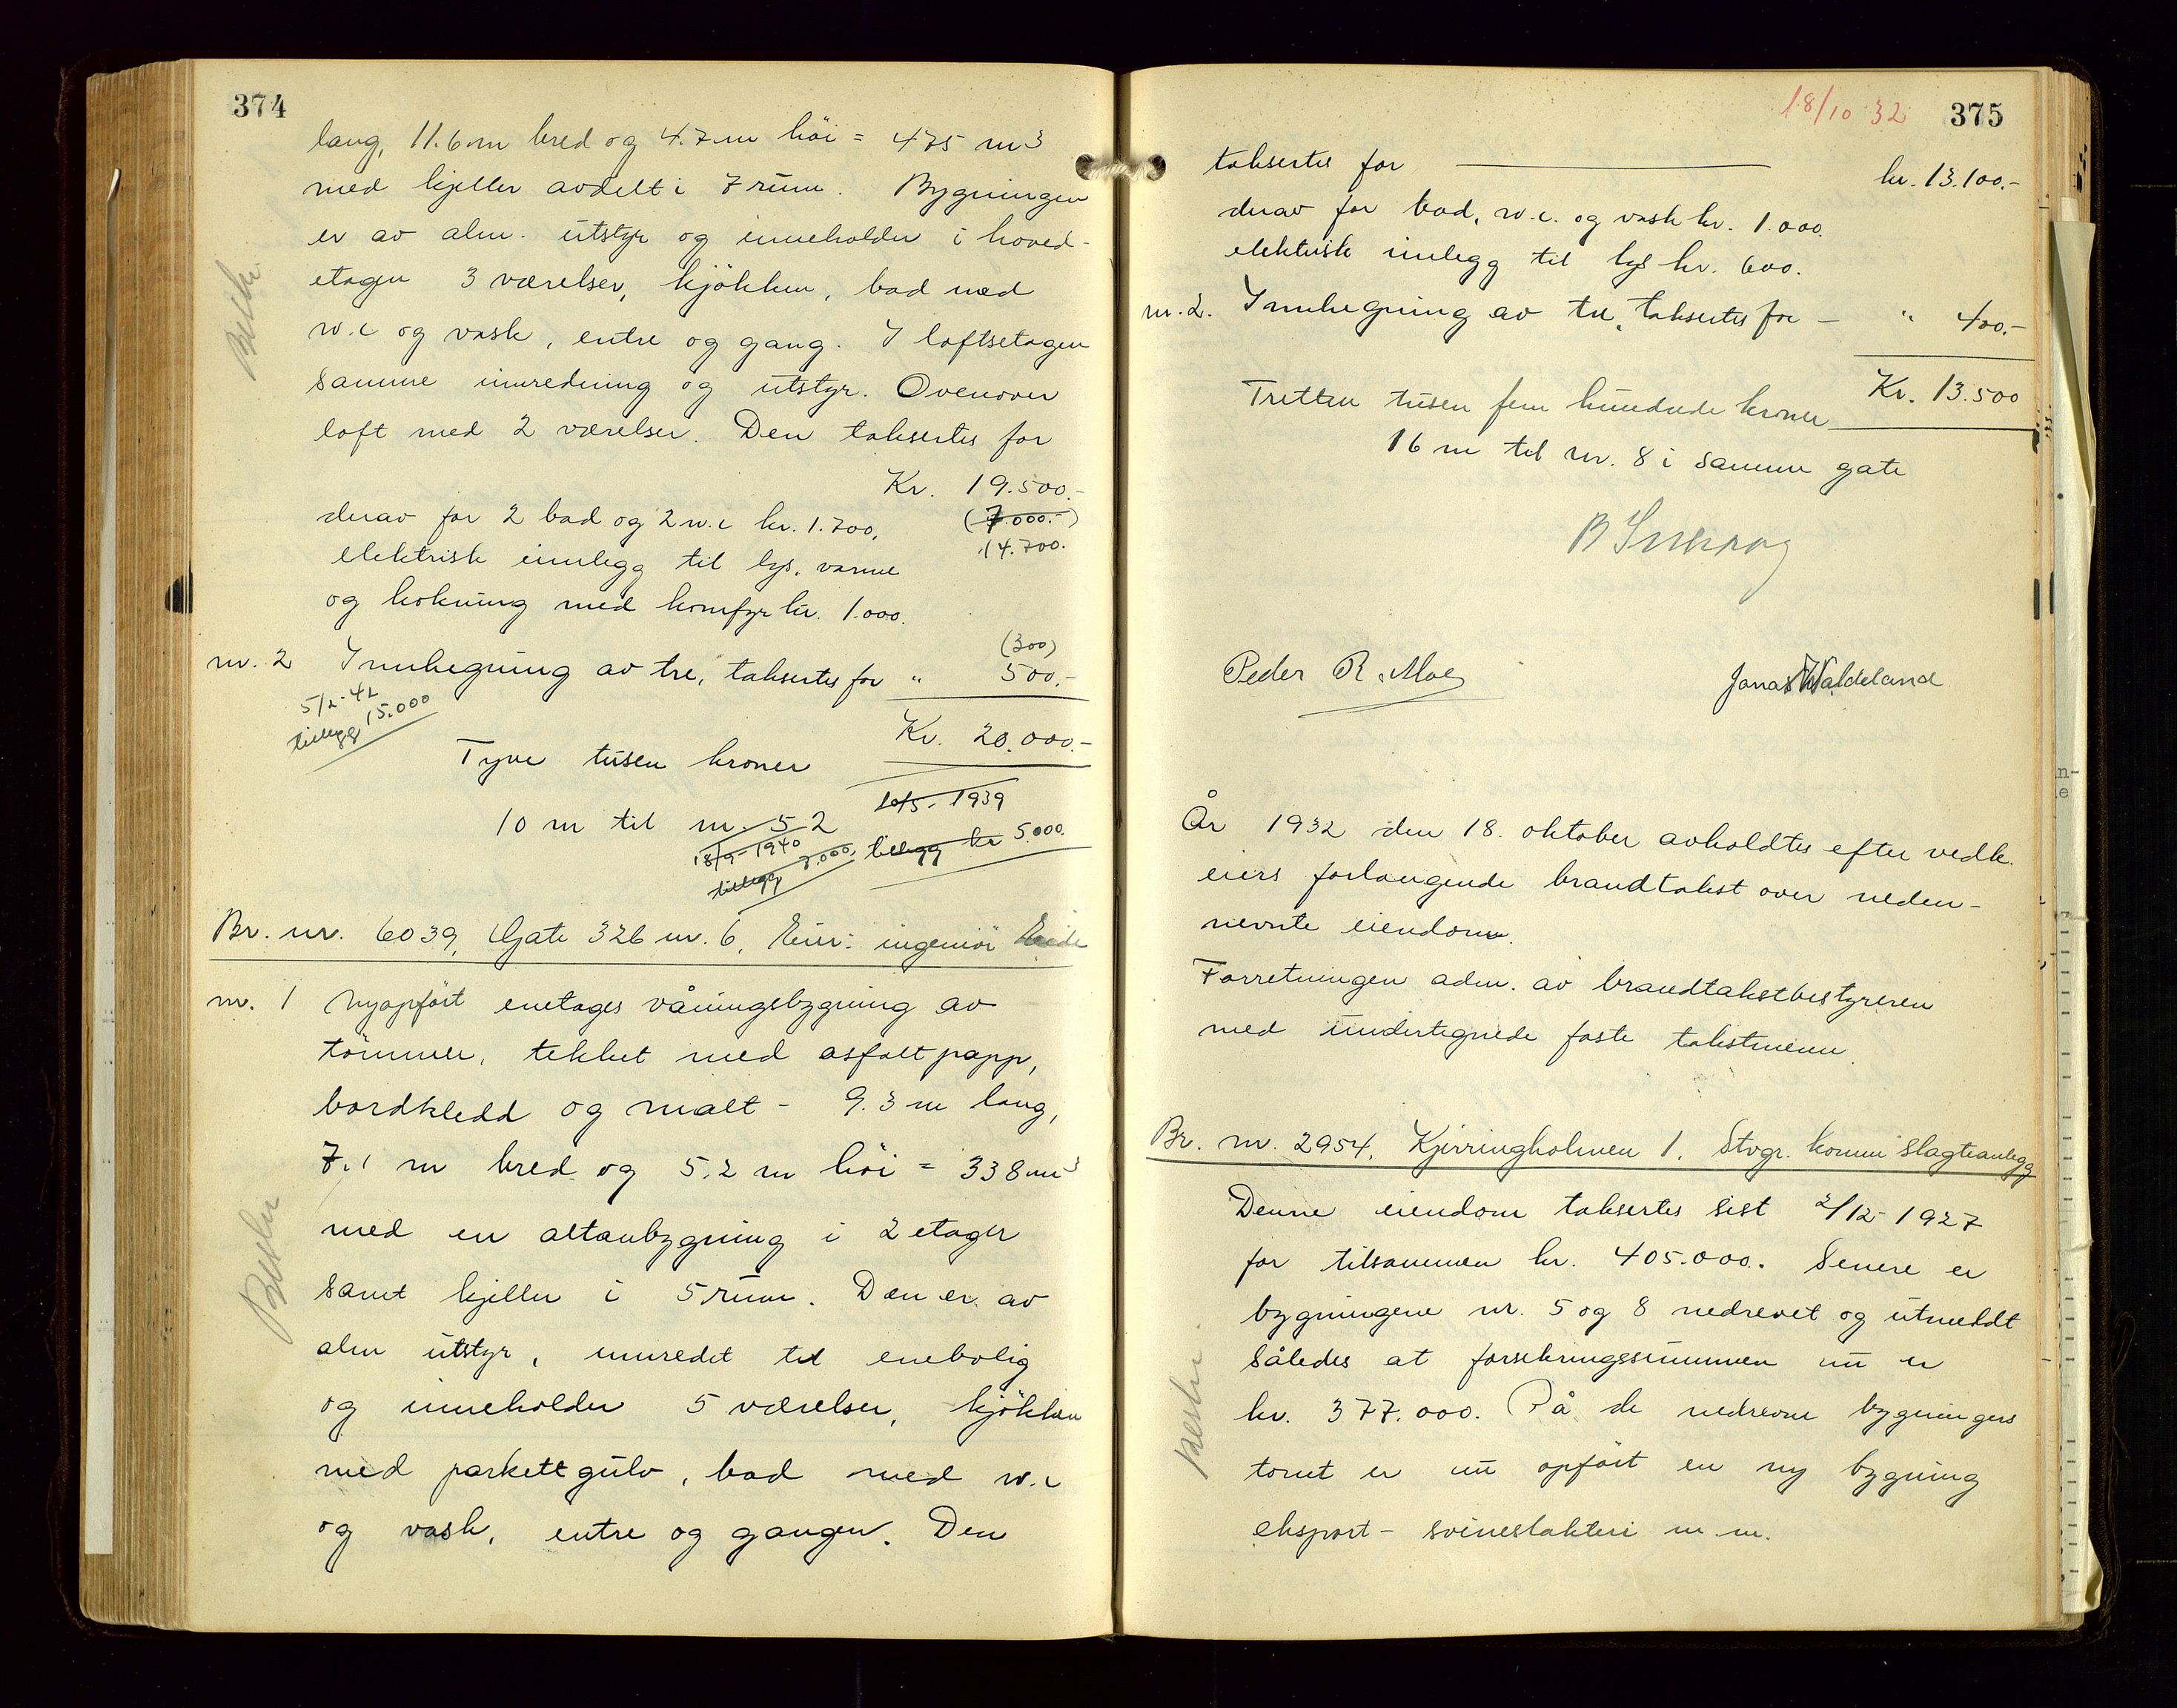 374
lang, 11.6 m bred og 4.7 m höi = 475 m3
med kjeller avdelt i 7 rum. Bygningen
er av alm. utstyr og inneholder i hoved-
etagen 3 værelser, kjökken, bad med
w.c og vask, entre og gang. I loftsetagen
samme innredning og utstyr. Ovenover
loft med 2 værelser. Den taksertes for
Kr. 19.500.-
derav for 2 bad og 2 w.c kr. 1.700, (7.000.-)
elektrisk innlegg til lys, varme 14.700.
og kokning med komfyr kr. 1.000.
(300)
nr. 2 Innhegning av tre, taksertes for " 500.-
5/2-42
tillegg 15.000
Kr. 20.000.-
Tyve tusen kroner
10/5-1939
10 m til nr. 52
tillegg kr 5.000.
18/9-1940
tillegg 7.000,
Br. nr. 6039, Gate 326 nr. 6, Eier: ingeniör Eide
nr. 1 Nyopfört enetages våningsbygning av
tömmer, tekket med asfaltpapp,
bordkledd og malt - 9.3 m lang,
7.1 m bred og 5.2 m höi = 338 m3
med en altanbygning i 2 etager
samt kjeller i 5 rum. Den er av
alm utstyr, innredet til enebolig
og inneholder 5 værelser, kjökken
med parkettgulv, bad med w.c
og vask, entre og ganger. Den
18/10 32 375
taksertes for kr. 13.100.-
derav for bad, w.c. og vask kr. 1.000.
elektrisk innlegg til lys kr. 600.
nr. 2. Innhegning av tre, taksertes for - " 400.-
Kr. 13.500
Tretten tusen fem hundrede kroner
16 m til nr. 8 i samme gate
Peder R. Moe Jonas Waldeland
År 1932 den 18. oktober avholdtes efter vedk.
eiers forlangende brandtakst over neden-
nevnte eiendom.
Forretningen adm. av brandtakstbestyreren
med undertegnede faste takstmenn.
Br. nr. 2954, Kjerringholmen 1. Stvgr. komm slagteanlegg
Denne eiendom taksertes sist 2/12-1927
for tilsammen kr. 405.000. Senere er
bygningene nr. 5 og 8 nedrevet og utmeldt
således at forsikringssummen nu er
kr. 377.000. På de nedrevne bygningers
tomt er nu opfört en ny bygning
eksport - svineslakteri m.m.